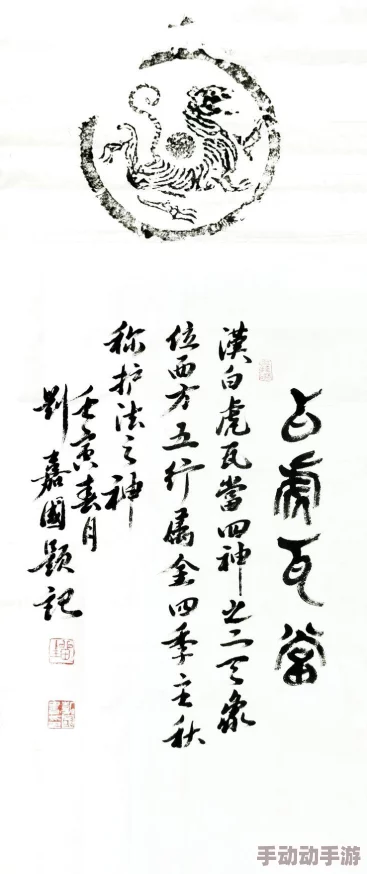 白虎瓦當
漢白虎瓦當四神之二天象
位西方五行属金四季主秋
称护法之神
壬寅春月
刘嘉國题記
手动动手游